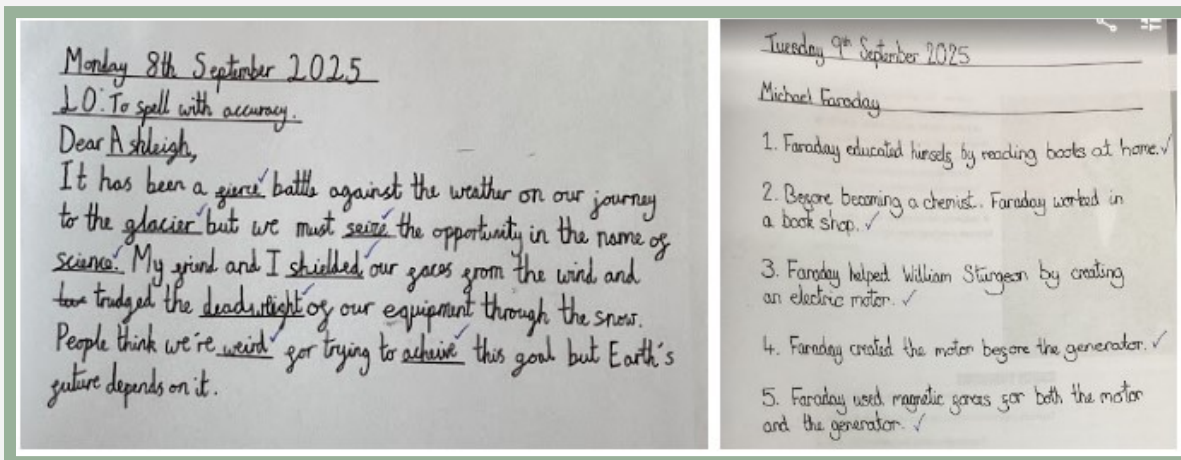 Monday 8th September 2025
LO: To spell with accuracy.
Dear Ashleigh,
It has been a fierce battle against the weather on our journey
to the glacier but we must seize the opportunity in the name of
science. My friend and I shielded our faces from the wind and
trudged the deadweight of our equipment through the snow.
People think we're weird for trying to acheive this goal but Earth's
future depends on it.
Tuesday 9th September 2025
Michael Faraday
1. Faraday educated himself by reading books at home.
2. Before becoming a chemist. Faraday worked in
a book shop.
3. Faraday helped William Sturgeon by creating
an electric motor.
4. Faraday created the motor before the generator.
5. Faraday used magnetic forces for both the motor
and the generator.